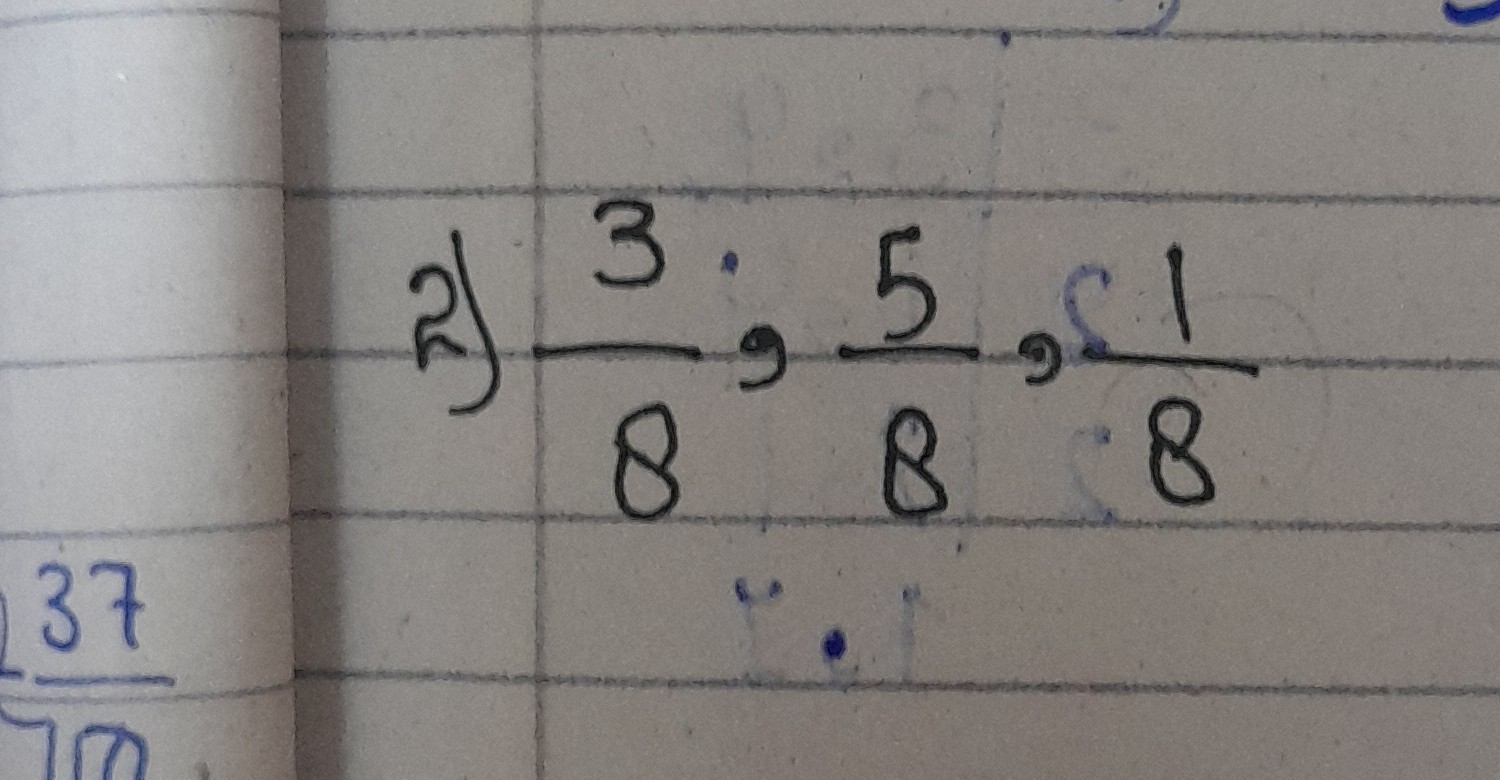 2) 3/8, 5/8, 1/8
37